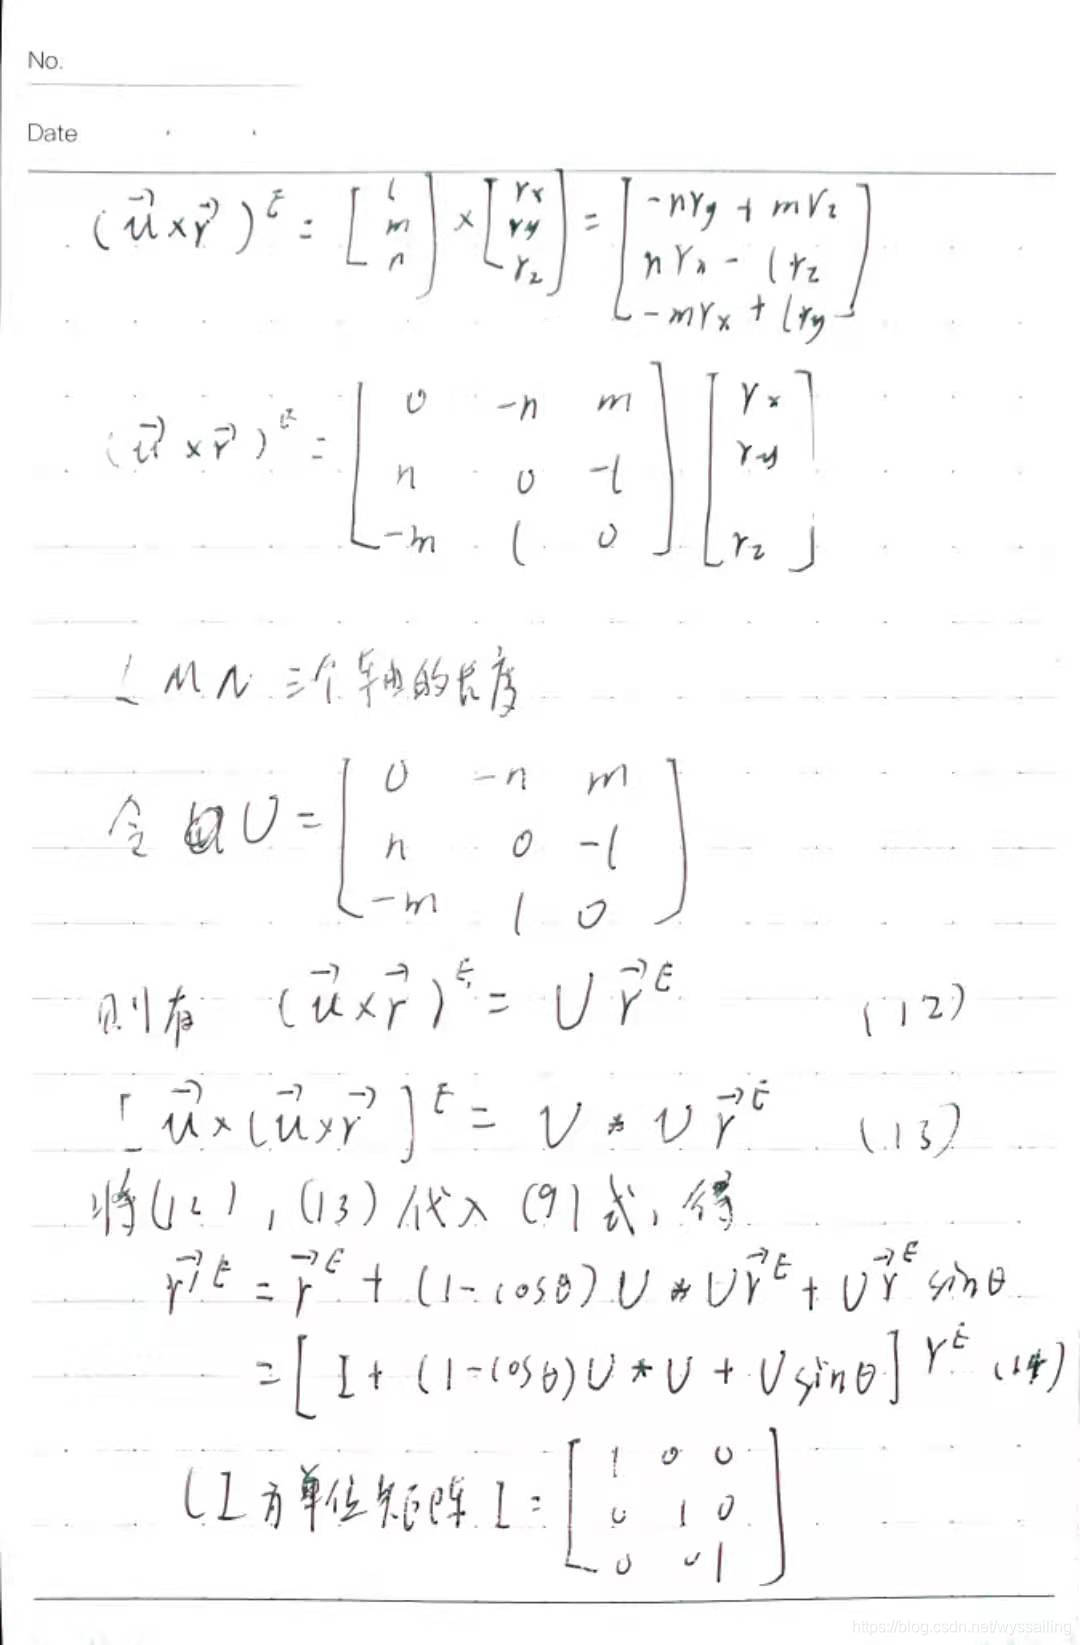 No.
Date
(u⃗×r⃗)^E = [l m n] × [rx ry rz] = [-nry + mrz
nrx - lrz
-mrx + lry]
(u⃗×r⃗)^E = [0 -n m] [rx
n 0 -l ry
-m l 0] rz]
L M N 三个轴的长度
令 U = [0 -n m
n 0 -l
-m l 0]
则有 (u⃗×r⃗)^E = U r⃗^E (12)
[u⃗×(u⃗×r⃗)]^E = U * U r⃗^E (13)
将(12),(13)代入(9)式,得
r⃗'^E = r⃗^E + (1-cosθ) U * U r⃗^E + U r⃗^E sinθ
= [I + (1-cosθ) U * U + U sinθ] r^E (14)
(I为单位矩阵 I = [1 0 0
0 1 0
0 0 1]
https://blog.csdn.net/wyssailing